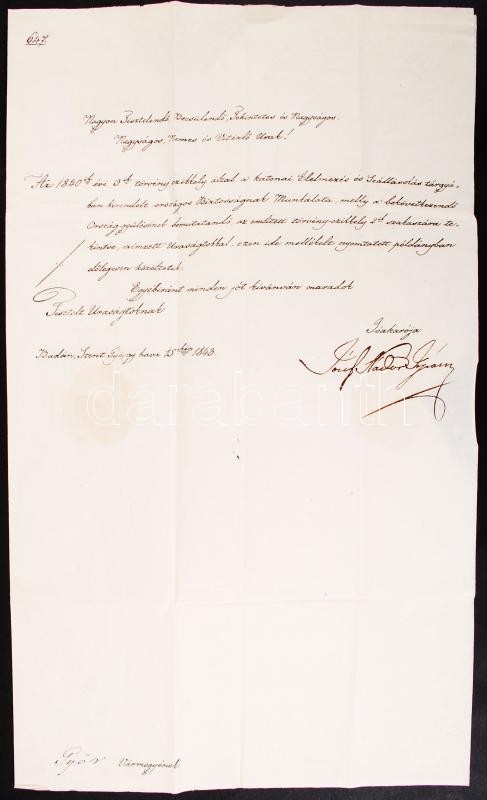 647.
Nagyon Tisztelendő, Becsülendő, Tekintetes és Nagyságos,
Nagyságos, Nemes és Vitézlő Urak!
Az 1840dik évi 3ik törvényczikkely által a katonai Élelmezés és Szállásolás tárgyá-
ban kirendelt országos Biztosságnak Munkálata, melly a bekövetkezendő
Országgyűlésnek bemutatandó, az említett törvényczikkely 2ik szakaszára te-
kintve, czímzett Uraságtokkal, ezen ide mellékelt nyomtatott példányban
előlegesen közöltetik.
Egyébiránt minden jót kívánván maradok
Tisztelt Uraságtoknak
Jóakarója
Budán, Szent György hava 15kén 1843.
József Nádor Ispán
darabanth
Győr Vármegyének